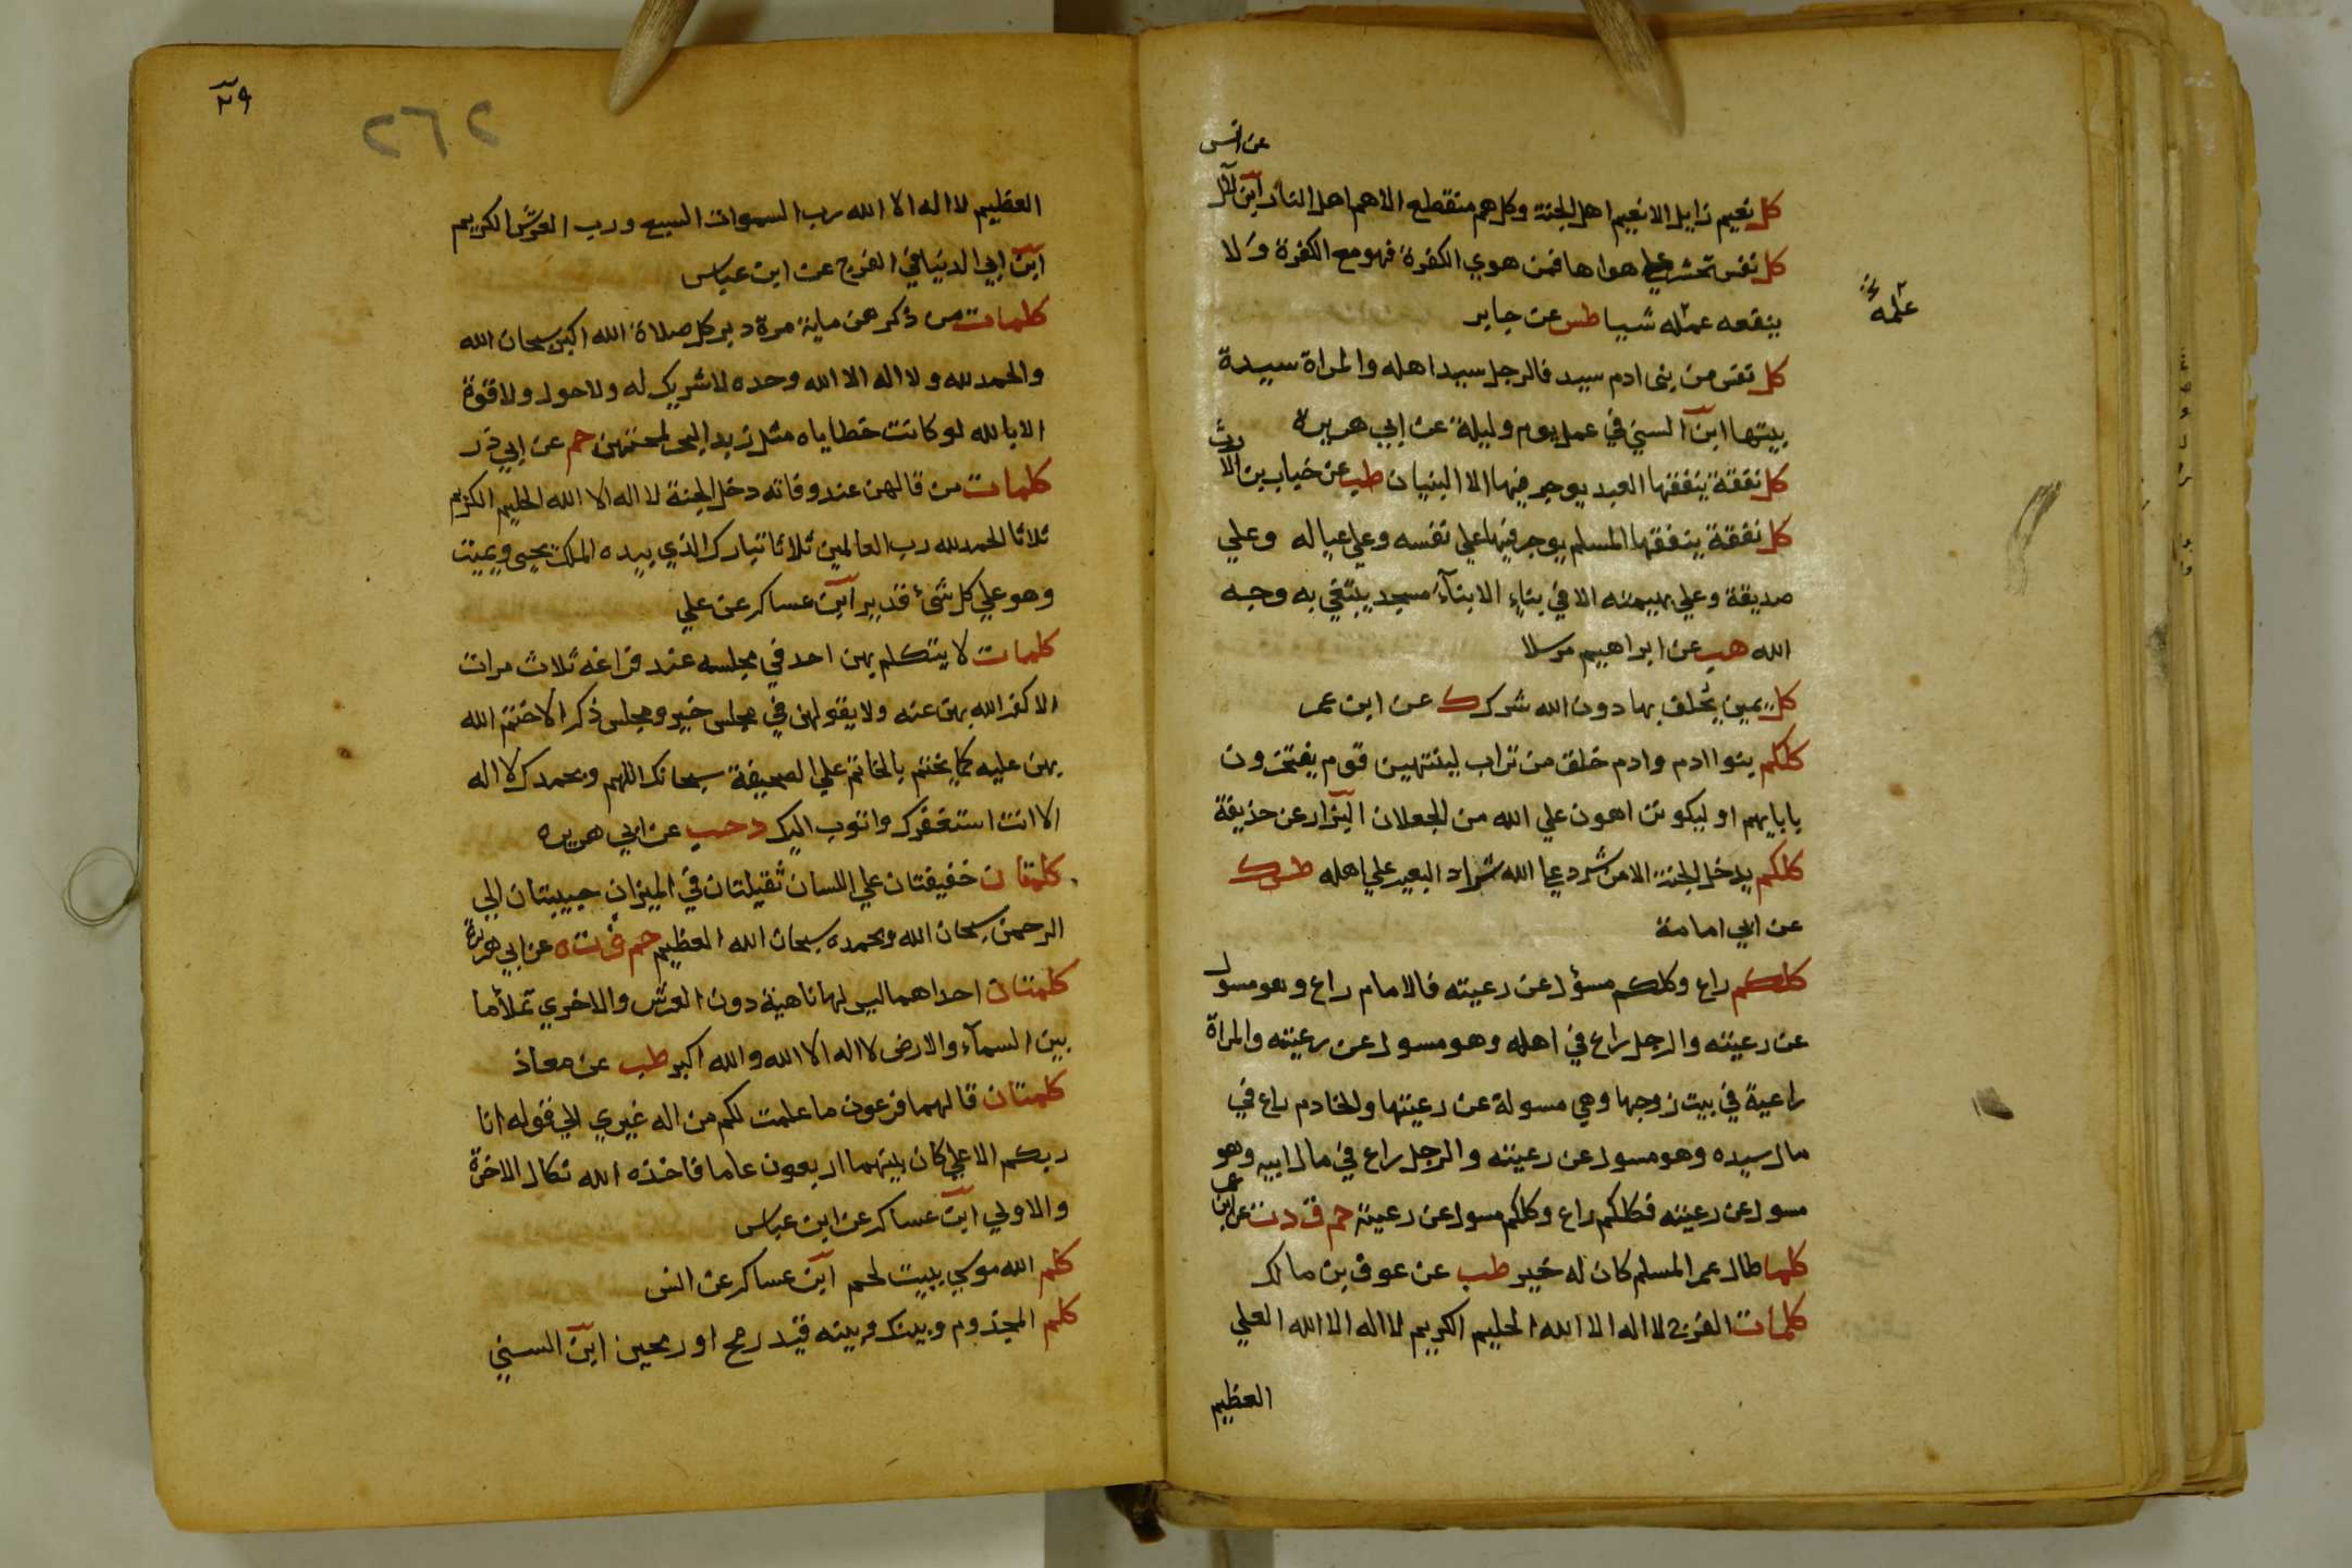 عن انس
كل نعيم زايل الا نعيم اهل الجنة وكل هم منقطع الا هم اهل النار ابن لال
كل نفس تحشر علي هواها فمن هوي الكفرة فهو مع الكفرة ولا
ينفعه عمله شيا طس عن جابر
عمله
كل نفس من بنى ادم سيد فالرجل سيد اهله والمراة سيدة
بيتها ابن السني في عمل يوم وليلة عن ابي هريرة
كل نفقة ينفقها العبد يوجر فيها الا البنيان طب عن خباب بن الارت
كل نفقة ينفقها المسلم يوجر فيها علي نفسه وعلي عياله وعلي
صديقة وعلي بهيمته الا في بناء الا بنآء مسجد يبتغي به وجه
الله هب عن ابراهيم مرسلا
كل يمين يحلف بها دون الله شرك ك عن ابن عمر
كلكم بنوا ادم وادم خلق من تراب لينتهين قوم يفتخرون
بابايهم او ليكونن اهون علي الله من الجعلان البزار عن حذيفة
كلكم يدخل الجنة الا من شرد علي الله شراد البعير علي اهله طس ك
عن ابي امامة
كلكم راع وكلكم مسؤل عن رعيته فالامام راع وهو مسول
عن رعيته والرجل راع في اهله وهو مسول عن رعيته والمراة
راعية في بيت زوجها وهي مسولة عن رعيتها والخادم راع في
مال سيده وهو مسول عن رعيته والرجل راع في مال ابيه وهو
مسول عن رعيته فكلكم راع وكلكم مسول عن رعيته حم ق د ت عن ابن عمر
كلما طال عمر المسلم كان له خير طب عن عوف بن مالك
كلمات الفرج لا اله الا الله الحليم الكريم لا اله الا الله العلي
العظيم
٢٩
٢٦٢
العظيم لا اله الا الله رب السموات السبع ورب العرش الكريم
ابن ابي الدنيا في الفرج عن ابن عباس
كلمات من ذكرهن ماية مرة دبر كل صلاة الله اكبر سبحان الله
والحمد لله ولا اله الا الله وحده لا شريك له ولا حول ولا قوة
الا بالله لو كانت خطاياه مثل زبد البحر لمحتهن حم عن ابي ذر
كلمات من قالهن عند وفاته دخل الجنة لا اله الا الله الحليم الكريم
ثلاثا الحمد لله رب العالمين ثلاثا تبارك الذي بيده الملك يحيى ويميت
وهو علي كل شئ قدير ابن عساكر عن علي
كلمات لا يتكلم بهن احد في مجلسه عند فراغه ثلاث مرات
الا كفر الله بهن عنه ولا يقولهن في مجلس خير ومجلس ذكر الا ختم الله
بهن عليه كما يختم بالخاتم علي الصحيفة سبحانك اللهم وبحمدك لا اله
الا انت استغفرك واتوب اليك د حب عن ابي هريره
كلمتان خفيفتان علي اللسان ثقيلتان في الميزان حبيبتان الي
الرحمن سبحان الله وبحمده سبحان الله العظيم حم ق ت ه عن ابي هريرة
كلمتان احداهما ليس لها ناهية دون العرش والاخري تملأ ما
بين السمآء والارض لا اله الا الله والله اكبر طب عن معاذ
كلمتان قالهما فرعون ما علمت لكم من اله غيري الي قوله انا
ربكم الاعلي كان بينهما اربعون عاما فاخذه الله نكال الاخرة
والاولي ابن عساكر عن ابن عباس
كلم الله موسي ببيت لحم ابن عساكر عن انس
كلم المجذوم وبينك وبينه قيد رمح او رمحين ابن السني